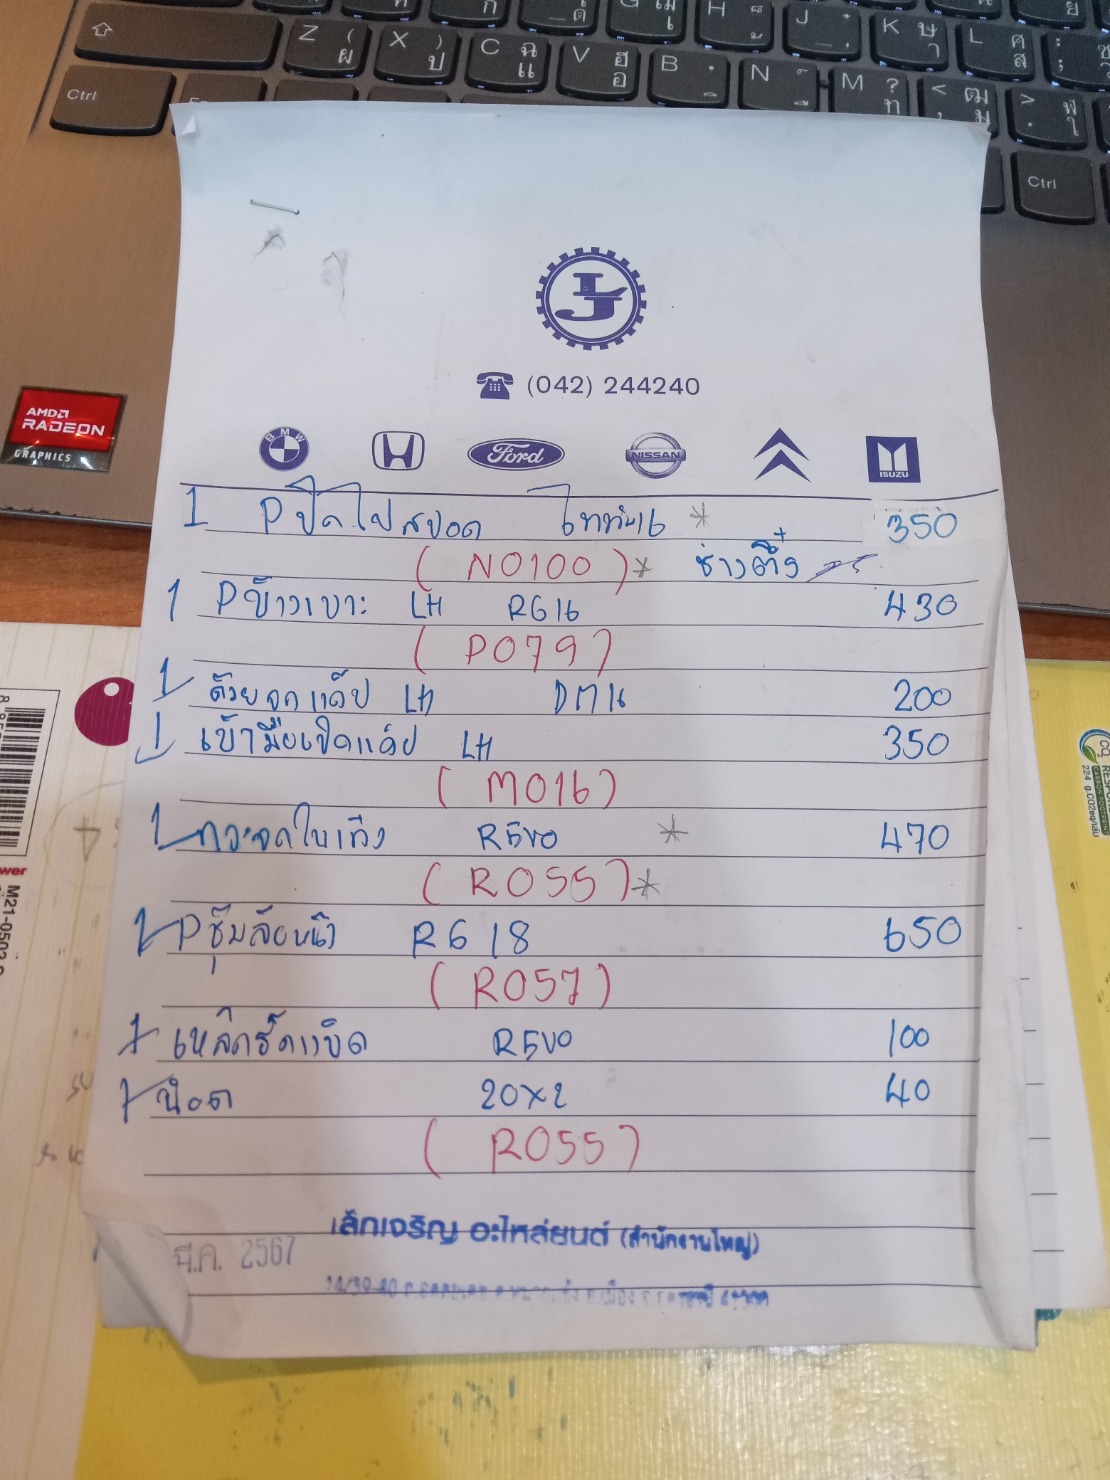 Z ( ผ
X ) ป
C ฉ แ
V ฮ อ
B
N
M ? ท
< ฒ ม
H
J
K ษ า
L ศ ส
Ctrl
Ctrl
AMD
RADEON
GRAPHICS
LJ
(042) 244240
BMW
Ford
NISSAN
ISUZU
1 Pปิดไฟสปอต ไททัน16 * 350
(N0100)* ช่างติ๋ง
1 Pข้างเบาะ LH RG16 430
(P079)
1 LH DM16 200
1 เบ้ามือเปิดแค๊ป LH 350
(M016)
1 กระจกใบเทิง REVO * 470
(R055)*
1 Pซุ้มล้อหน้า RG18 650
(R057)
1 เหล็กรัดแบ็ต REVO 100
1 น๊อต 20x2 40
(R055)
มี.ค. 2567
เล็กเจริญ อะไหล่ยนต์ (สำนักงานใหญ่)
CO₂
224 g.CO2eq/กล่อง